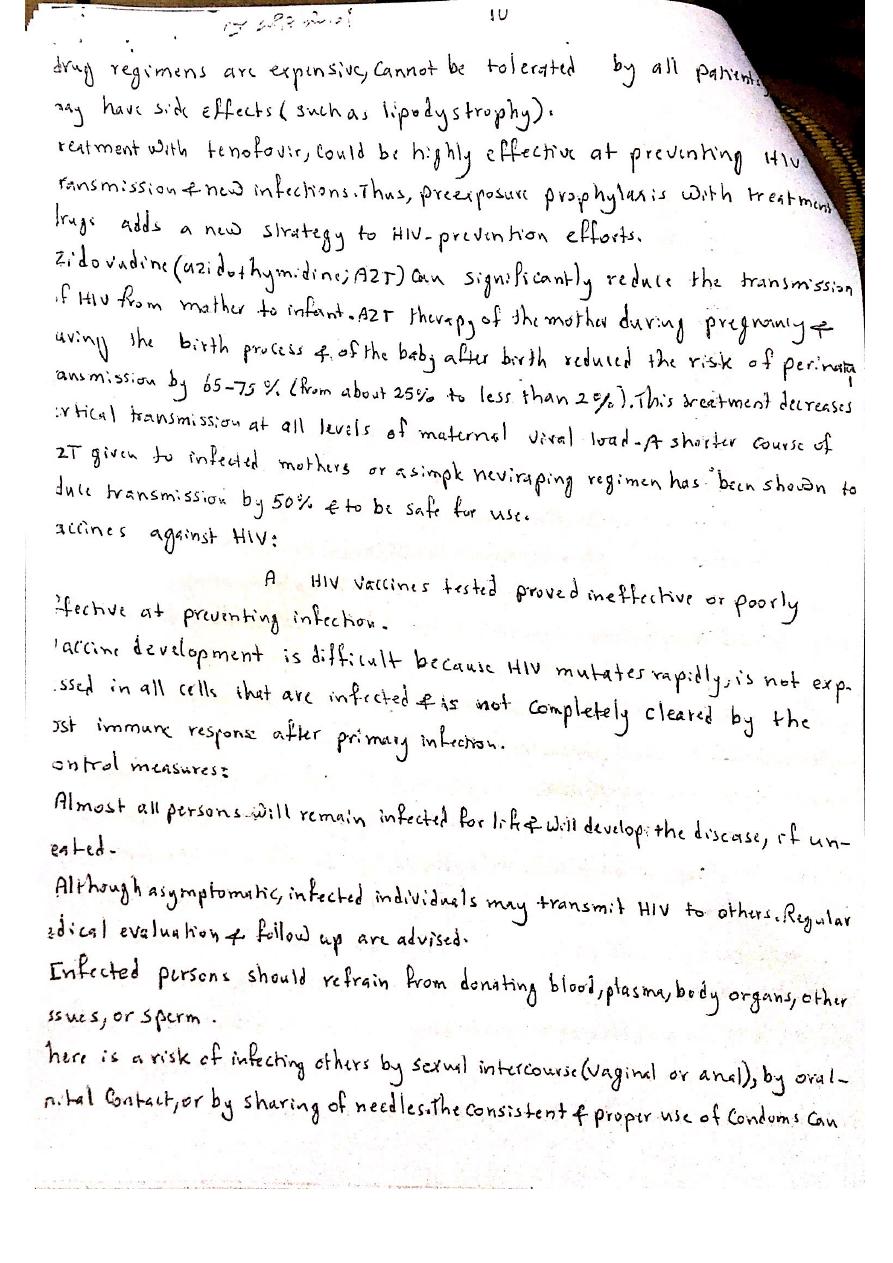 10
drug regimens are expensive, Cannot be tolerated by all patients,
may have side effects (such as lipodystrophy).
reatment with tenofovir, Could be highly effective at preventing HIV
ransmission & new infections. Thus, preexposure prophylaxis with treatment
drugs adds a new strategy to HIV-prevention efforts.
Zidovudine (azidothymidine; AZT) Can significantly reduce the transmission
of HIV from mother to infant. AZT therapy of the mother during pregnancy &
uring the birth process & of the baby after birth reduced the risk of perinata
ansmission by 65-75% (from about 25% to less than 2%). This treatment decreases
ertical transmission at all levels of maternal viral load. A shorter course of
ZT given to infected mothers or a simple neviraping regimen has been shown to
duce transmission by 50% & to be safe for use.
accines against HIV:
A HIV vaccines tested proved ineffective or poorly
ffective at preventing infection.
vaccine development is difficult because HIV mutates rapidly, is not exp-
essed in all cells that are infected & is not completely cleared by the
ost immune response after primary infection.
ontrol measures:
Almost all persons will remain infected for life & will develop the disease, if un-
eated.
Although asymptomatic, infected individuals may transmit HIV to others. Regular
edical evaluation & follow up are advised.
Infected persons should refrain from donating blood, plasma, body organs, other
issues, or sperm.
here is a risk of infecting others by sexual intercourse (vaginal or anal), by oral-
nital Contact, or by sharing of needles. The consistent & proper use of Condoms Can